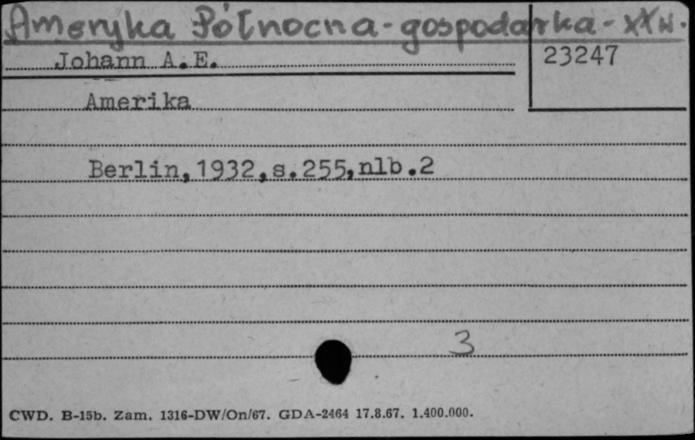 Ameryka Północna - gospodarka - XX w.
Johann A.E.
23247
Amerika
Berlin,1932,s.255,nlb.2
3
CWD. B-15b. Zam. 1316-DW/On/67. GDA-2464 17.8.67. 1.400.000.